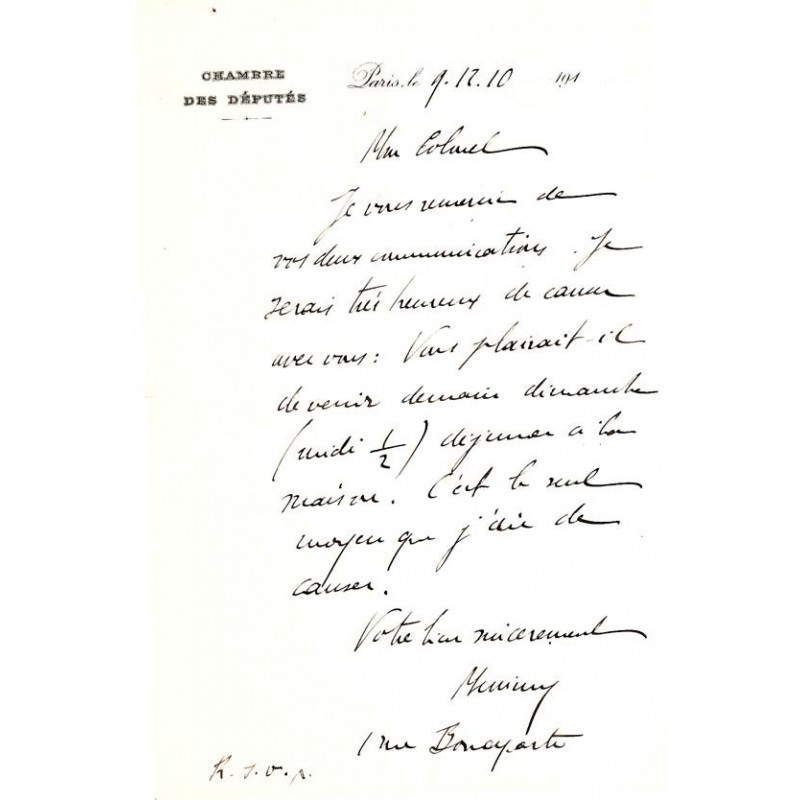 CHAMBRE
DES DÉPUTÉS
Paris, le 9.12.10 191
Mon Colonel
Je vous remercie de
vos deux communications. Je
serais très heureux de causer
avec vous : Vous plairait-il
de venir demain dimanche
(midi 1/2) déjeuner à la
maison. C'est le seul
moyen que j'aie de
causer.
Votre bien sincèrement
Messimy
1 rue Bonaparte
R.S.V.P.